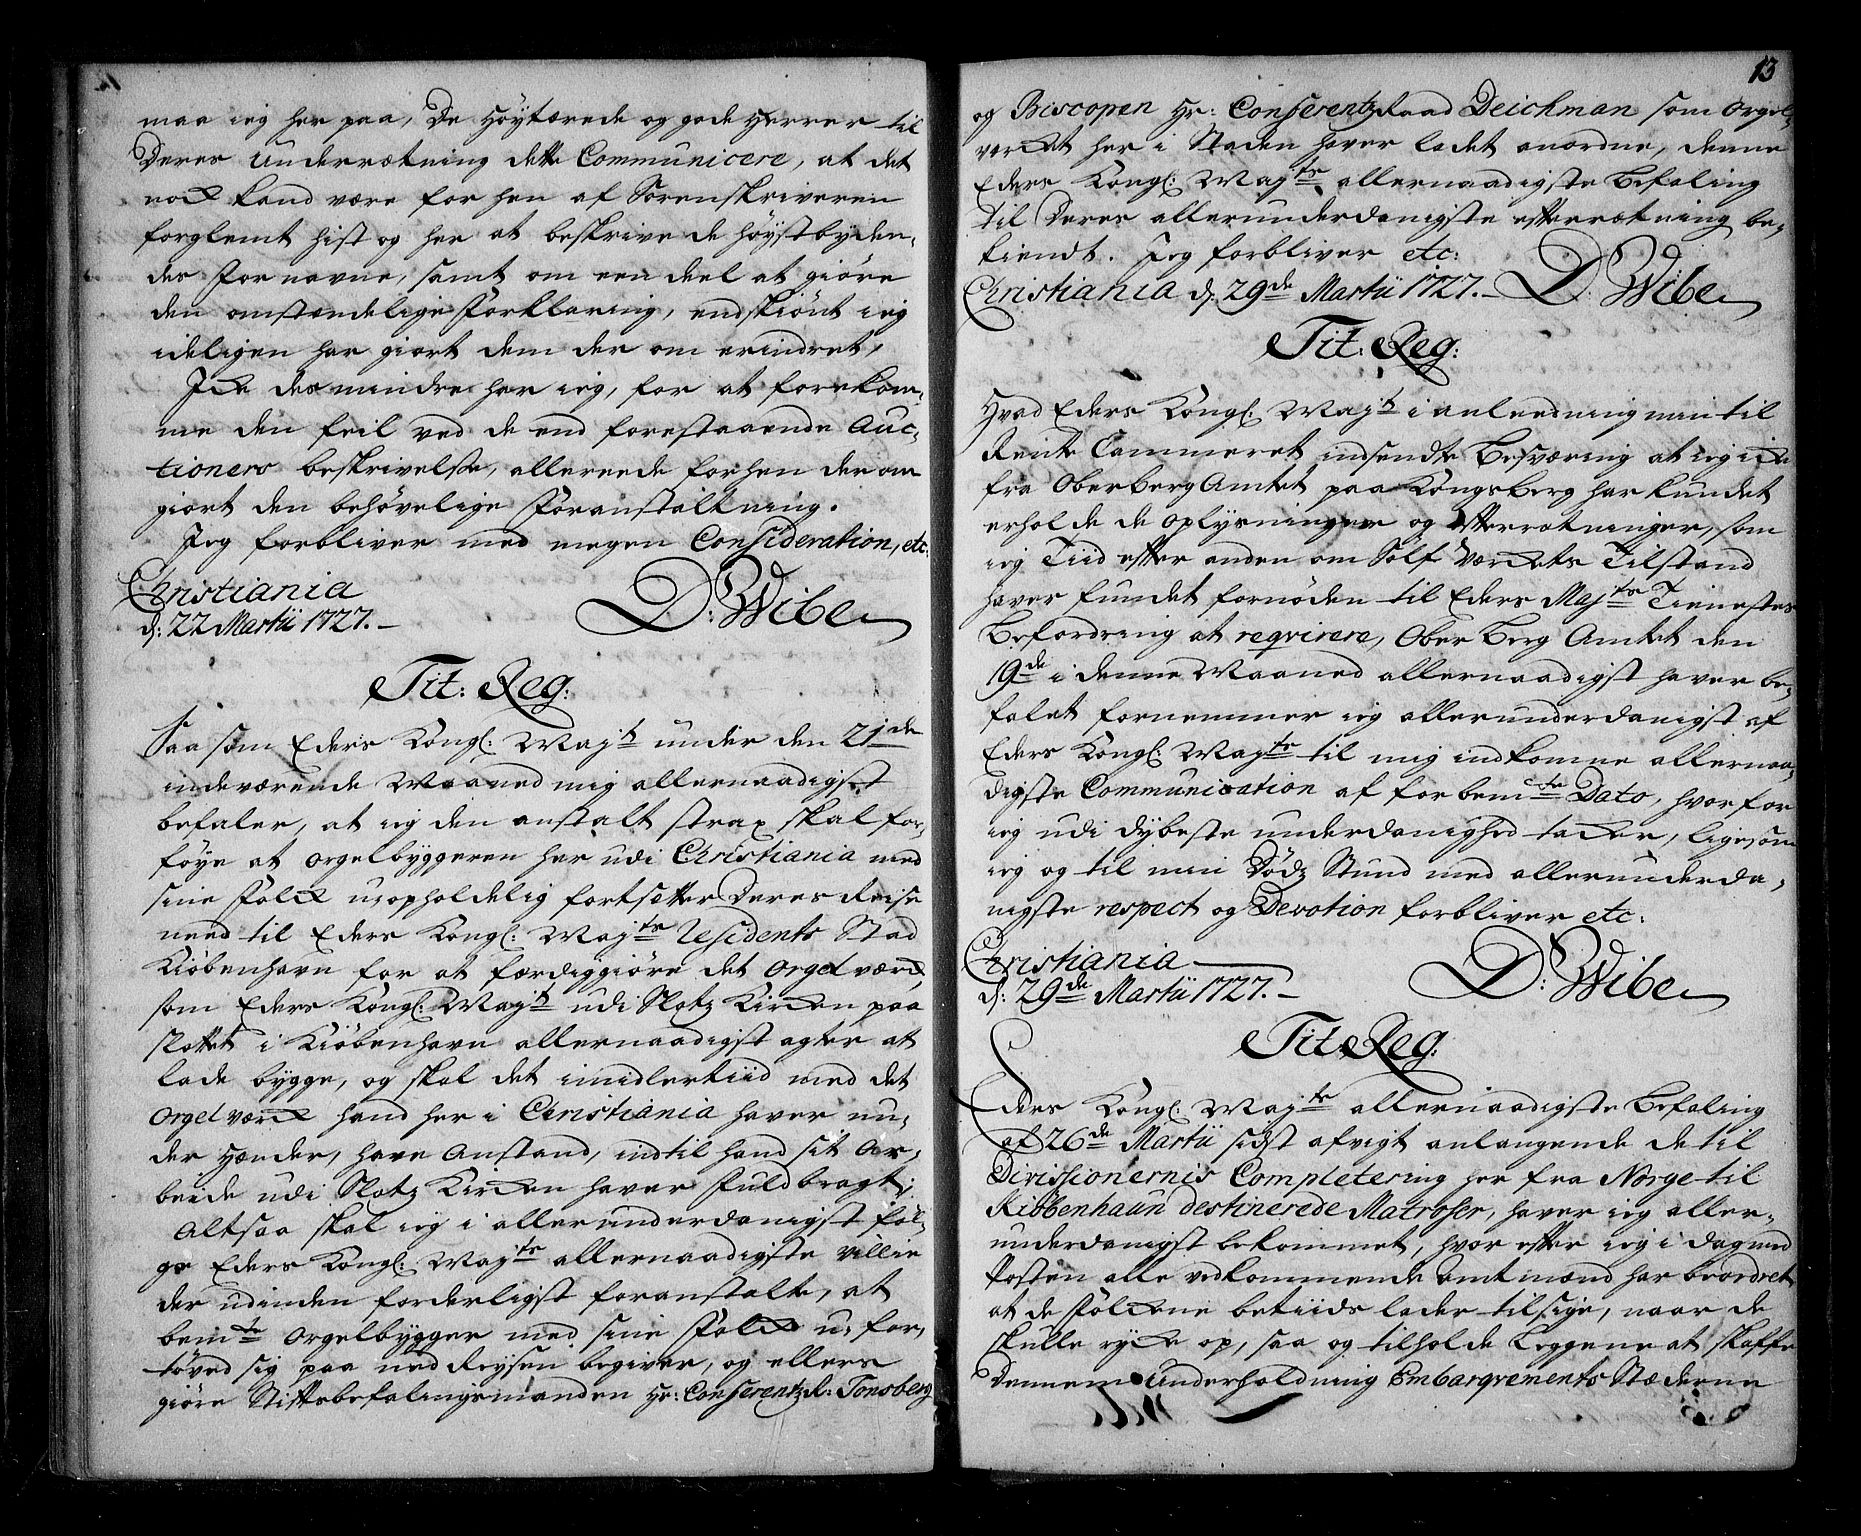 maa ieg her paa, De Höytærede og gode Herrer til
Deres Underretning dette Communicere, at det
nock kand være for hen af Sorenskriveren
forglemt hist og her at beskrive de höystbyden,
des For navne, samt om een deel at giöre
den omstændelige Forklaring, endskiönt ieg
ideligen har giort dem der om erindret,
Icke des mindre har ieg, for at forekom,
me den feil ved de end forestaaende Auc,
tioners beskrivelse, allereede forhen der om
giort den behövelige Foranstaltning.
Jeg forbliver med megen Consideration, etc:
Christiania
d: 22 Martii 1727.
D: Wibe
Tit: Reg:
Saa som Eders Kongl: Mayt under den 21de
indeværende Maaned mig allernaadigst
befaler, at ieg den anstalt strax skal for,
föye at orgelbyggeren her udi Christiania med
sine Folck uopholdelig fortsætter Deres Reise
need til Eders Kongl: Mayts Residents Stad
Kiöbenhavn for at færdiggiöre det Orgelværck
som Eders Kongl: Mayt udi Slotz Kircken paa
Slottet i Kiöbenhavn allernaadigst agter at
lade bygge, og skal det imidlertiid med det
Orgelværck hand her i Christiania haver un,
der Hænder, have Anstand, indtil hand sit Ar,
beide udi Slotz Kircken haver Fuldbragt;
Altsaa skal ieg i allerunderdanigst föl,
ge Eders Kongl: Mayts allernaadigste villie
der udinden forderligst foranstalte, at
bemte Orgelbygger med sine Folck u,for,
töved sig paa ned Reysen begiver, og ellers
giöre Stiftsbefalingsmanden Hr: ConferentzR: Tonsberg
13
og Biscopen Hr: Conferentz Raad Deichman som Orgel,
vercket her i Staden haver ladet anordne, denne
Eders Kongl: Mayts allernaadigste Befaling
til Deres allerunderdanigste efterretning be,
kiendt. Jeg forbliver etc:
Christiania d: 29de Martii 1727.
D: Wibe
Tit: Reg:
Hvad Eders Kongl: Mayt i anleedning min til
Rente Cammeret indsendte Besværing at ieg icke
fra OberBergAmtet paa Kongsberg har kundet
erholde de Oplysninger og Efterretninger, som
ieg Tiid efter anden om Sölf Værckets Tilstand
haver fundet fornöden til Eders Mayts Tienestes
Befordring at reqvirere, Ober Berg Amtet den
19de i denne Maaned allernaadigst haver be,
falet fornemmer ieg allerunderdanigst af
Eders Kongl: Mayts til mig indkomne allernaa,
digste Communication af forbemte Dato, hvorfor
ieg udi dybeste underdanighed tacker, ligesom
ieg og til min Dödz Stund med allerunderda,
nigste respect og Devotion forbliver etc:
Christiania
d: 29de Martii 1727.
D: Wibe
Tit Reg:
Eders Kongl: Mayts allernaadigste Befaling
af 26de Martii sidst afvigt anlangende de til
Divissionernis Completering her fra Norge til
Kiöbenhaun destinerede Matroser, haver ieg aller,
underdanigst bekommet, hvor efter ieg i dag med
Posten alle vedkommende Amtmænd har beordret
at de Folckene betiids lader tilsige, naar de
skulle rycke op, saa og tilholde Leggene at skaffe
Dennem Underholdning Embarqvements Stæderne